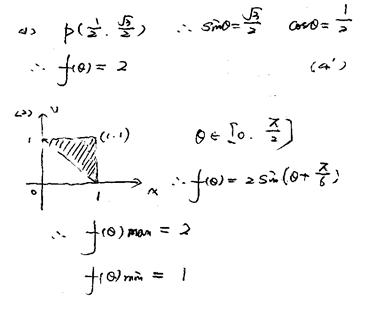 (1) P(1/2, √3/2) ∴ sinθ = √3/2 cosθ = 1/2
∴ f(θ) = 2 (4')
(2) y
1 (1,1) θ∈[0, π/2]
0 1 x ∴ f(θ) = 2sin(θ+π/6)
∴ f(θ)max = 2
f(θ)min = 1